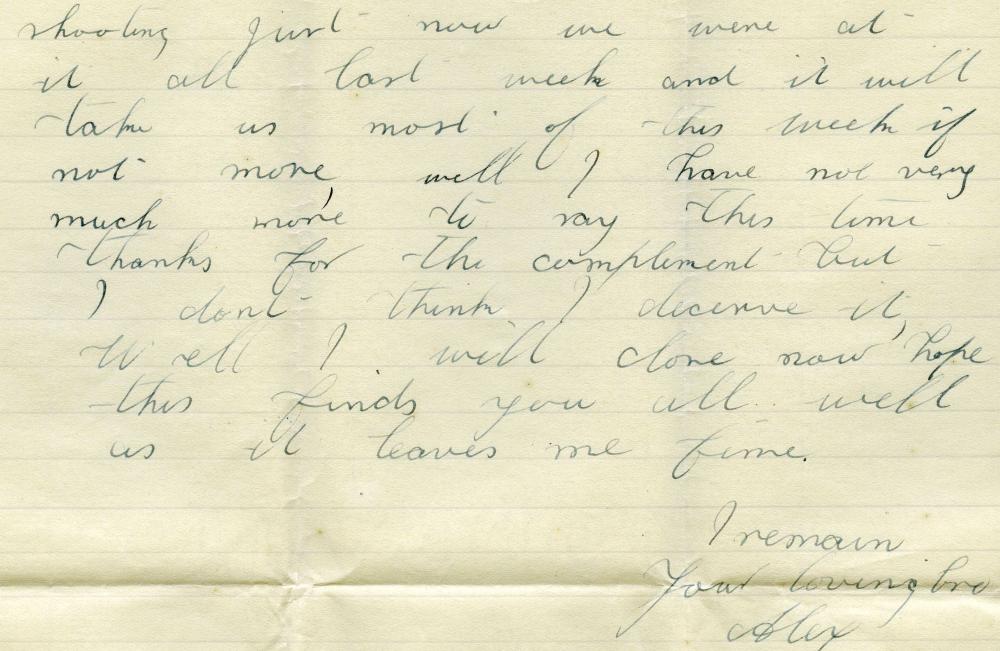 shooting just now we were at
it all last week and it will
take us most of this week if
not more, well I have not very
much more to say this time
thanks for the compliment but
I dont think I deserve it,
Well I will close now, hope
this finds you all well
as it leaves me fine.
I remain
Your loving bro
Alex